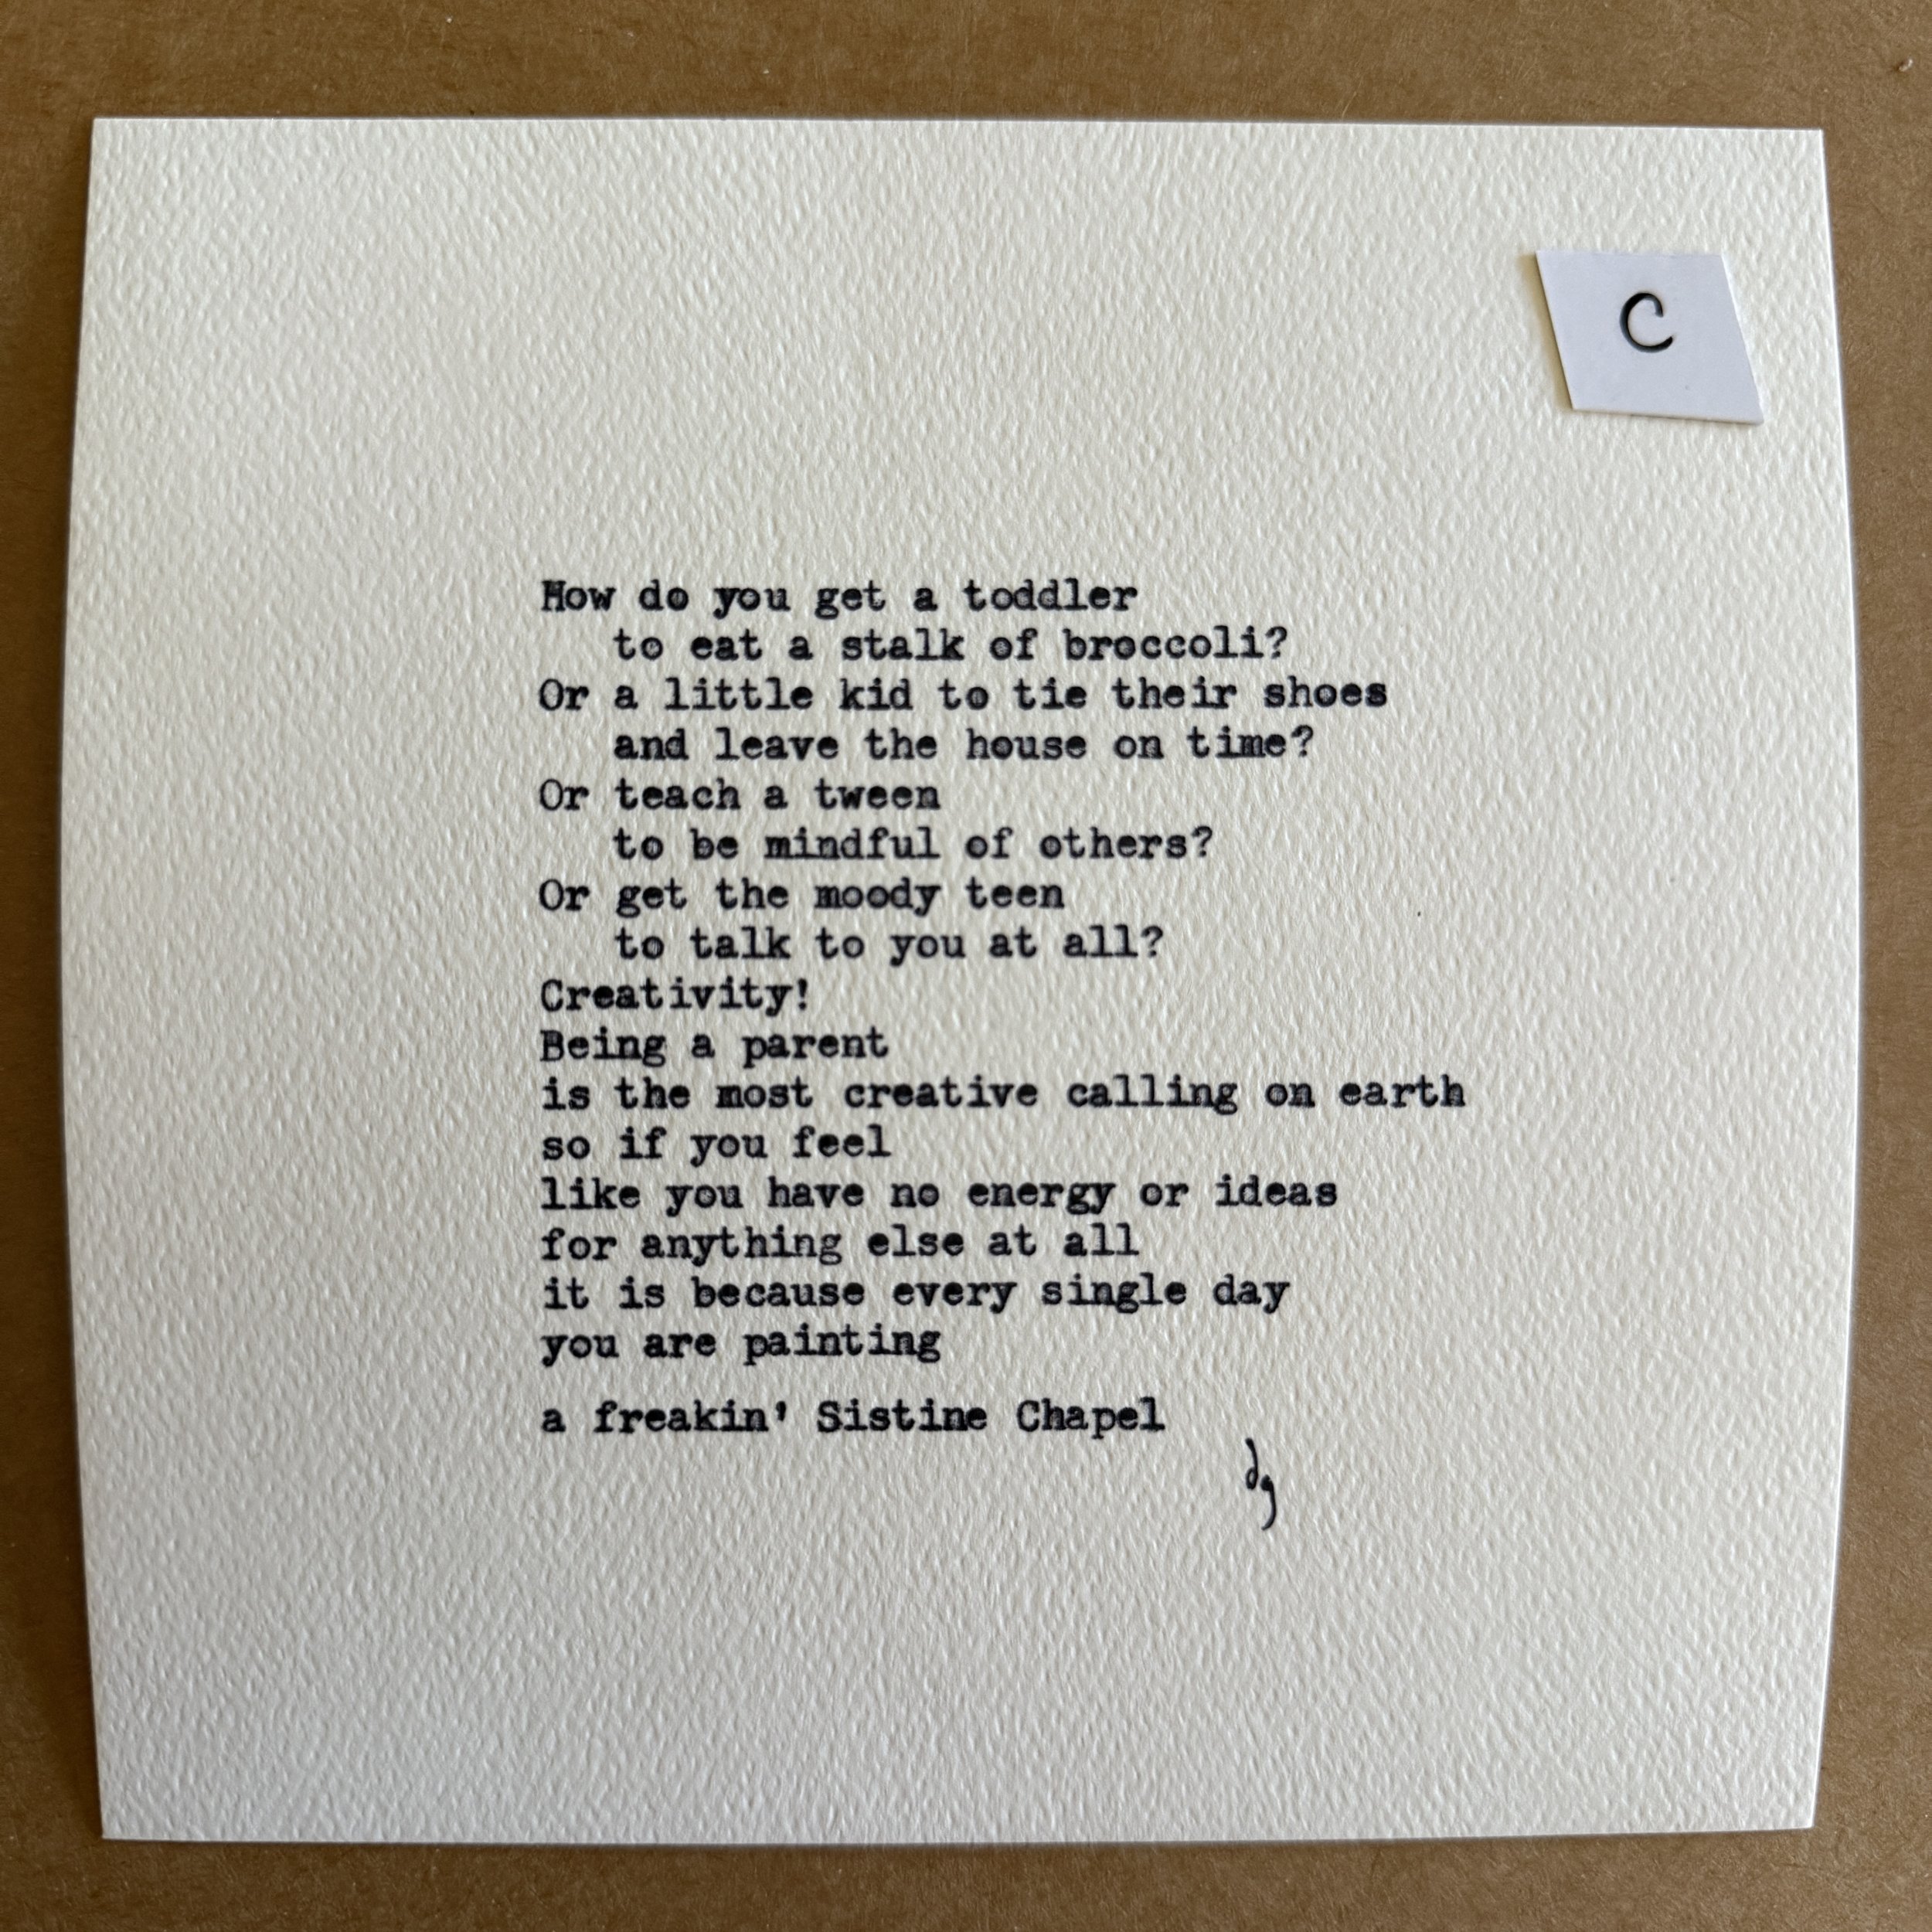 C
How do you get a toddler
to eat a stalk of broccoli?
Or a little kid to tie their shoes
and leave the house on time?
Or teach a tween
to be mindful of others?
Or get the moody teen
to talk to you at all?
Creativity!
Being a parent
is the most creative calling on earth
so if you feel
like you have no energy or ideas
for anything else at all
it is because every single day
you are painting
a freakin' Sistine Chapel
dg